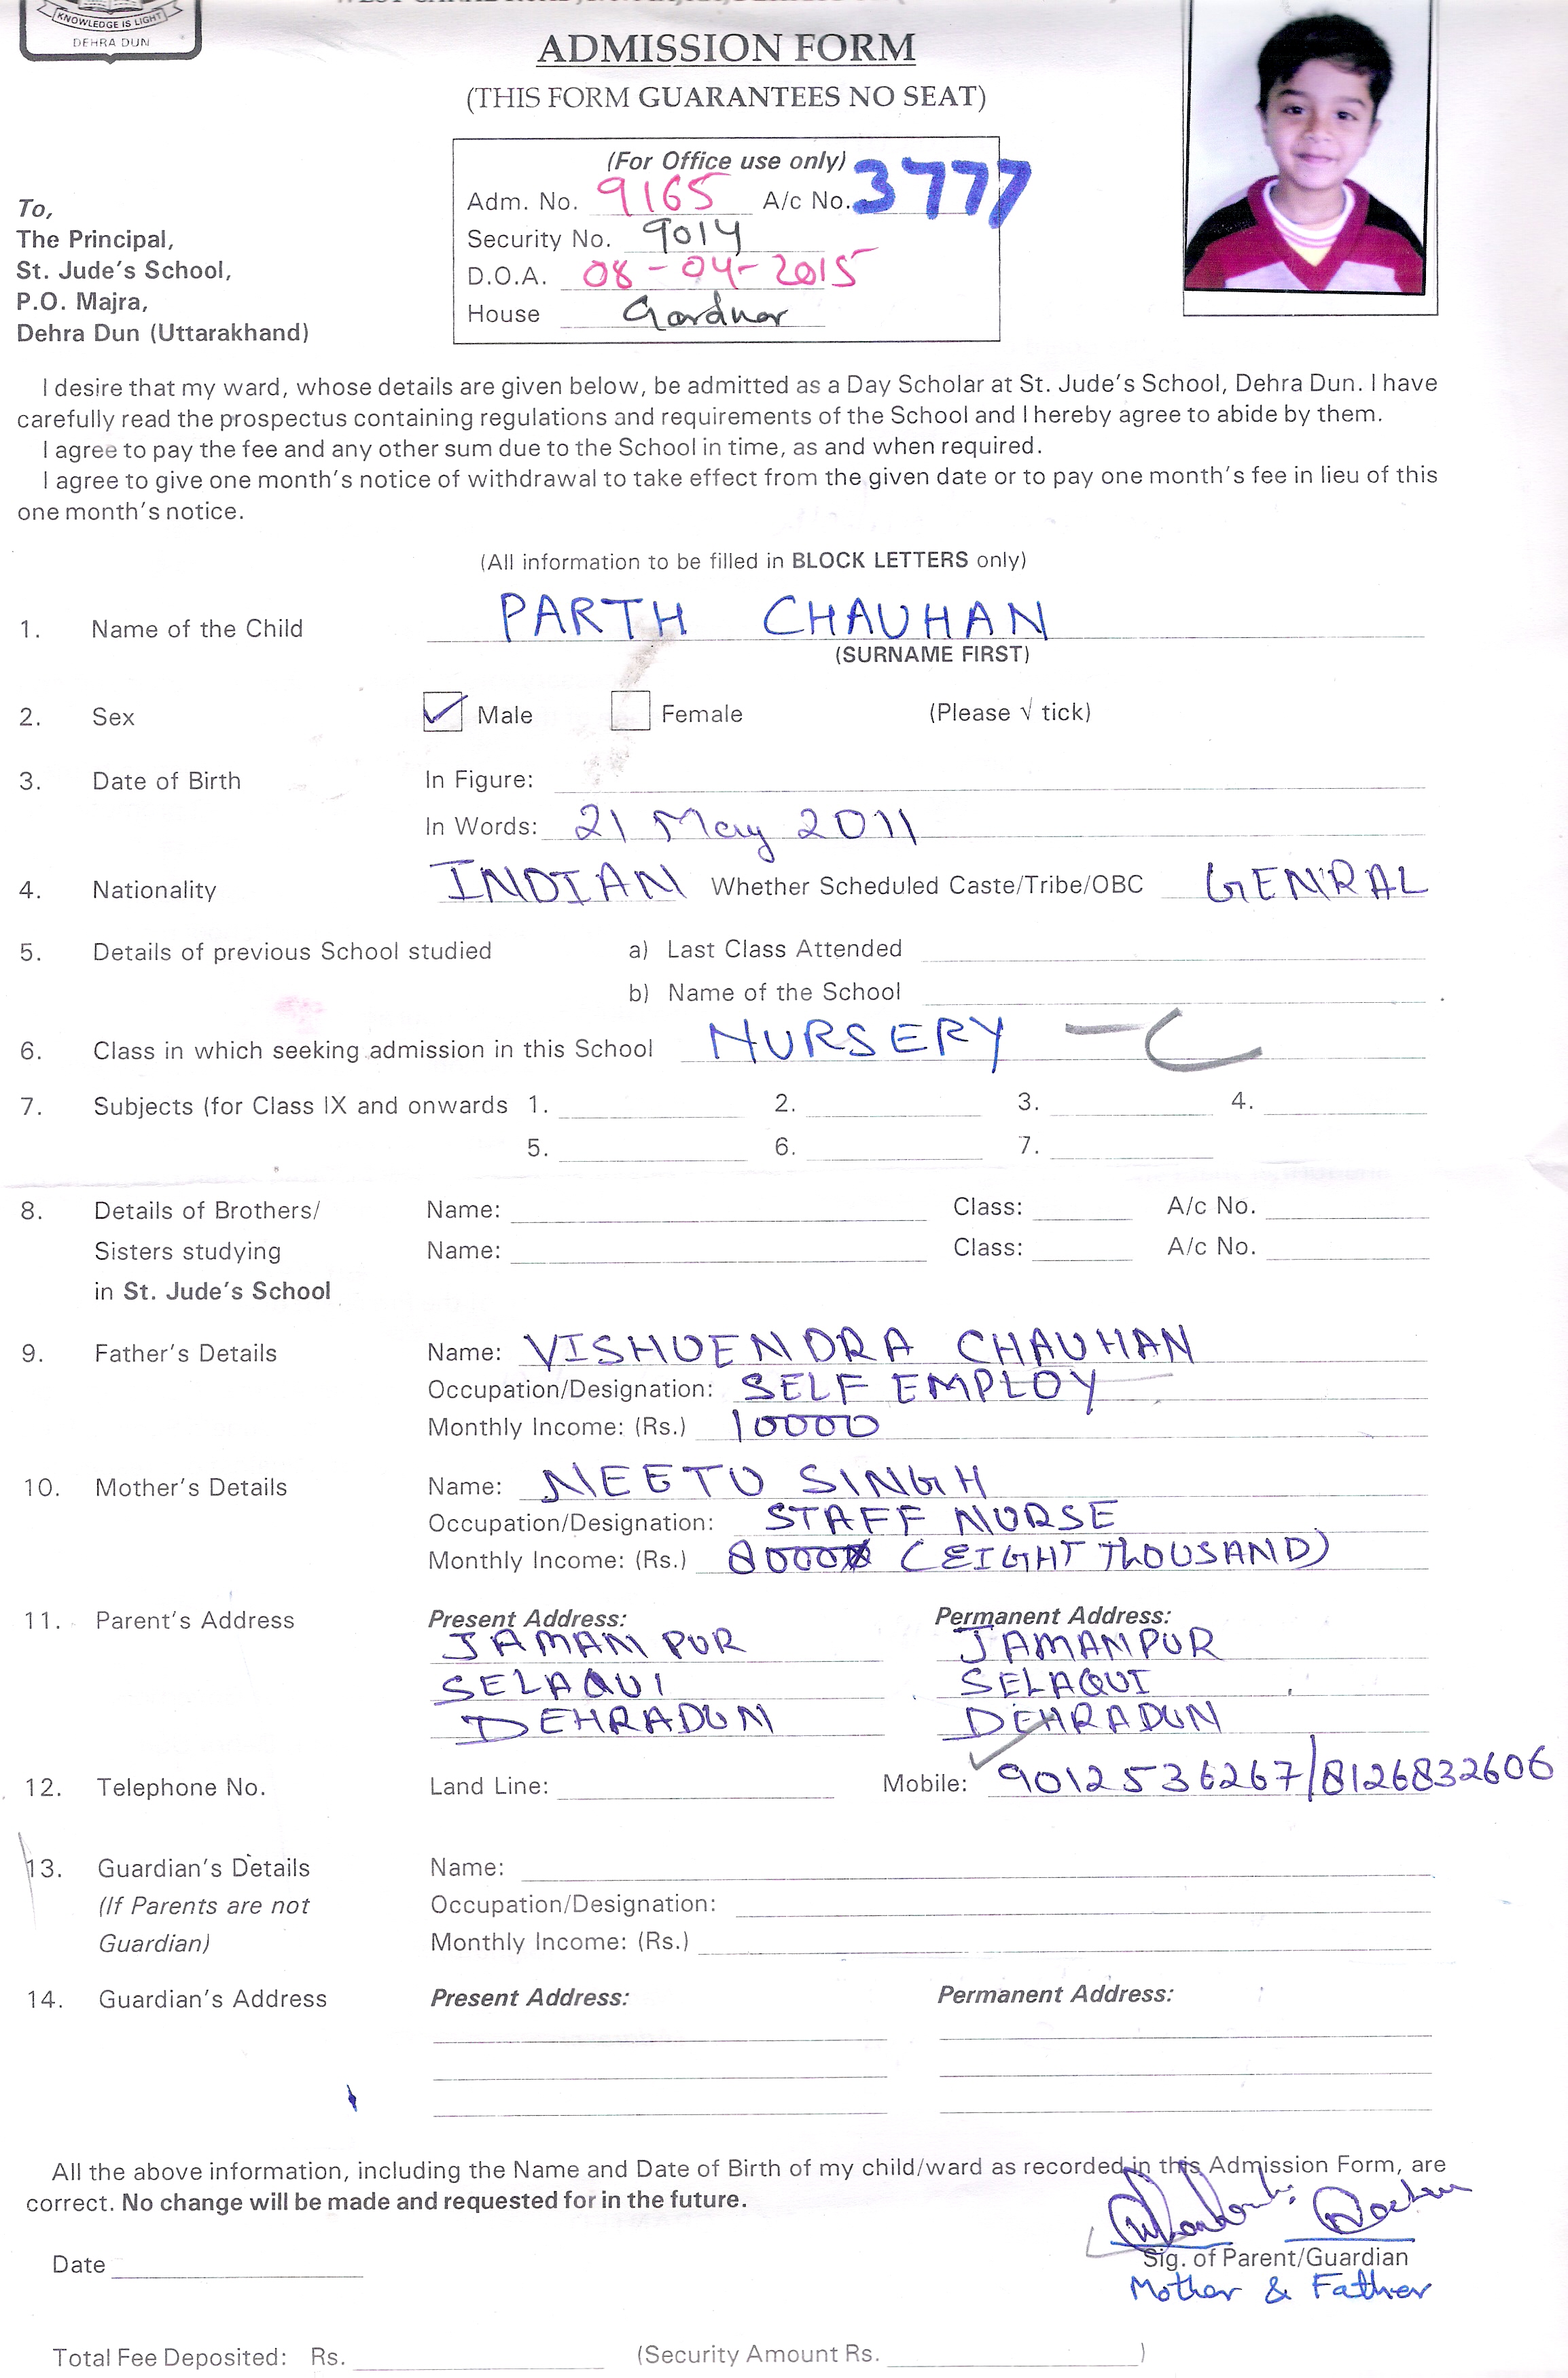 KNOWLEDGE IS LIGHT
DEHRA DUN
ADMISSION FORM
(THIS FORM GUARANTEES NO SEAT)
(For Office use only)
Adm. No. 9165 A/c No. 3777
Security No. 9014
D.O.A. 08-04-2015
House Gardner
To,
The Principal,
St. Jude's School,
P.O. Majra,
Dehra Dun (Uttarakhand)
I desire that my ward, whose details are given below, be admitted as a Day Scholar at St. Jude's School, Dehra Dun. I have
carefully read the prospectus containing regulations and requirements of the School and I hereby agree to abide by them.
I agree to pay the fee and any other sum due to the School in time, as and when required.
I agree to give one month's notice of withdrawal to take effect from the given date or to pay one month's fee in lieu of this
one month's notice.
(All information to be filled in BLOCK LETTERS only)
1. Name of the Child PARTH CHAUHAN
(SURNAME FIRST)
2. Sex ✓ Male Female (Please √ tick)
3. Date of Birth In Figure:
In Words: 21 May 2011
4. Nationality INDIAN Whether Scheduled Caste/Tribe/OBC GENRAL
5. Details of previous School studied a) Last Class Attended
b) Name of the School
6. Class in which seeking admission in this School NURSERY - C
7. Subjects (for Class IX and onwards 1. 2. 3. 4.
5. 6. 7.
8. Details of Brothers/ Name: Class: A/c No.
Sisters studying Name: Class: A/c No.
in St. Jude's School
9. Father's Details Name: VISHVENDRA CHAUHAN
Occupation/Designation: SELF EMPLOY
Monthly Income: (Rs.) 10000
10. Mother's Details Name: NEETU SINGH
Occupation/Designation: STAFF NURSE
Monthly Income: (Rs.) 8000 (EIGHT THOUSAND)
11. Parent's Address Present Address: Permanent Address:
JAMANPUR JAMANPUR
SELAQUI SELAQUI
DEHRADUN DEHRADUN
12. Telephone No. Land Line: Mobile: 9012536267/8126832606
13. Guardian's Details Name:
(If Parents are not Occupation/Designation:
Guardian) Monthly Income: (Rs.)
14. Guardian's Address Present Address: Permanent Address:
All the above information, including the Name and Date of Birth of my child/ward as recorded in this Admission Form, are
correct. No change will be made and requested for in the future.
Date Sig. of Parent/Guardian
Mother & Father
Total Fee Deposited: Rs. (Security Amount Rs. )